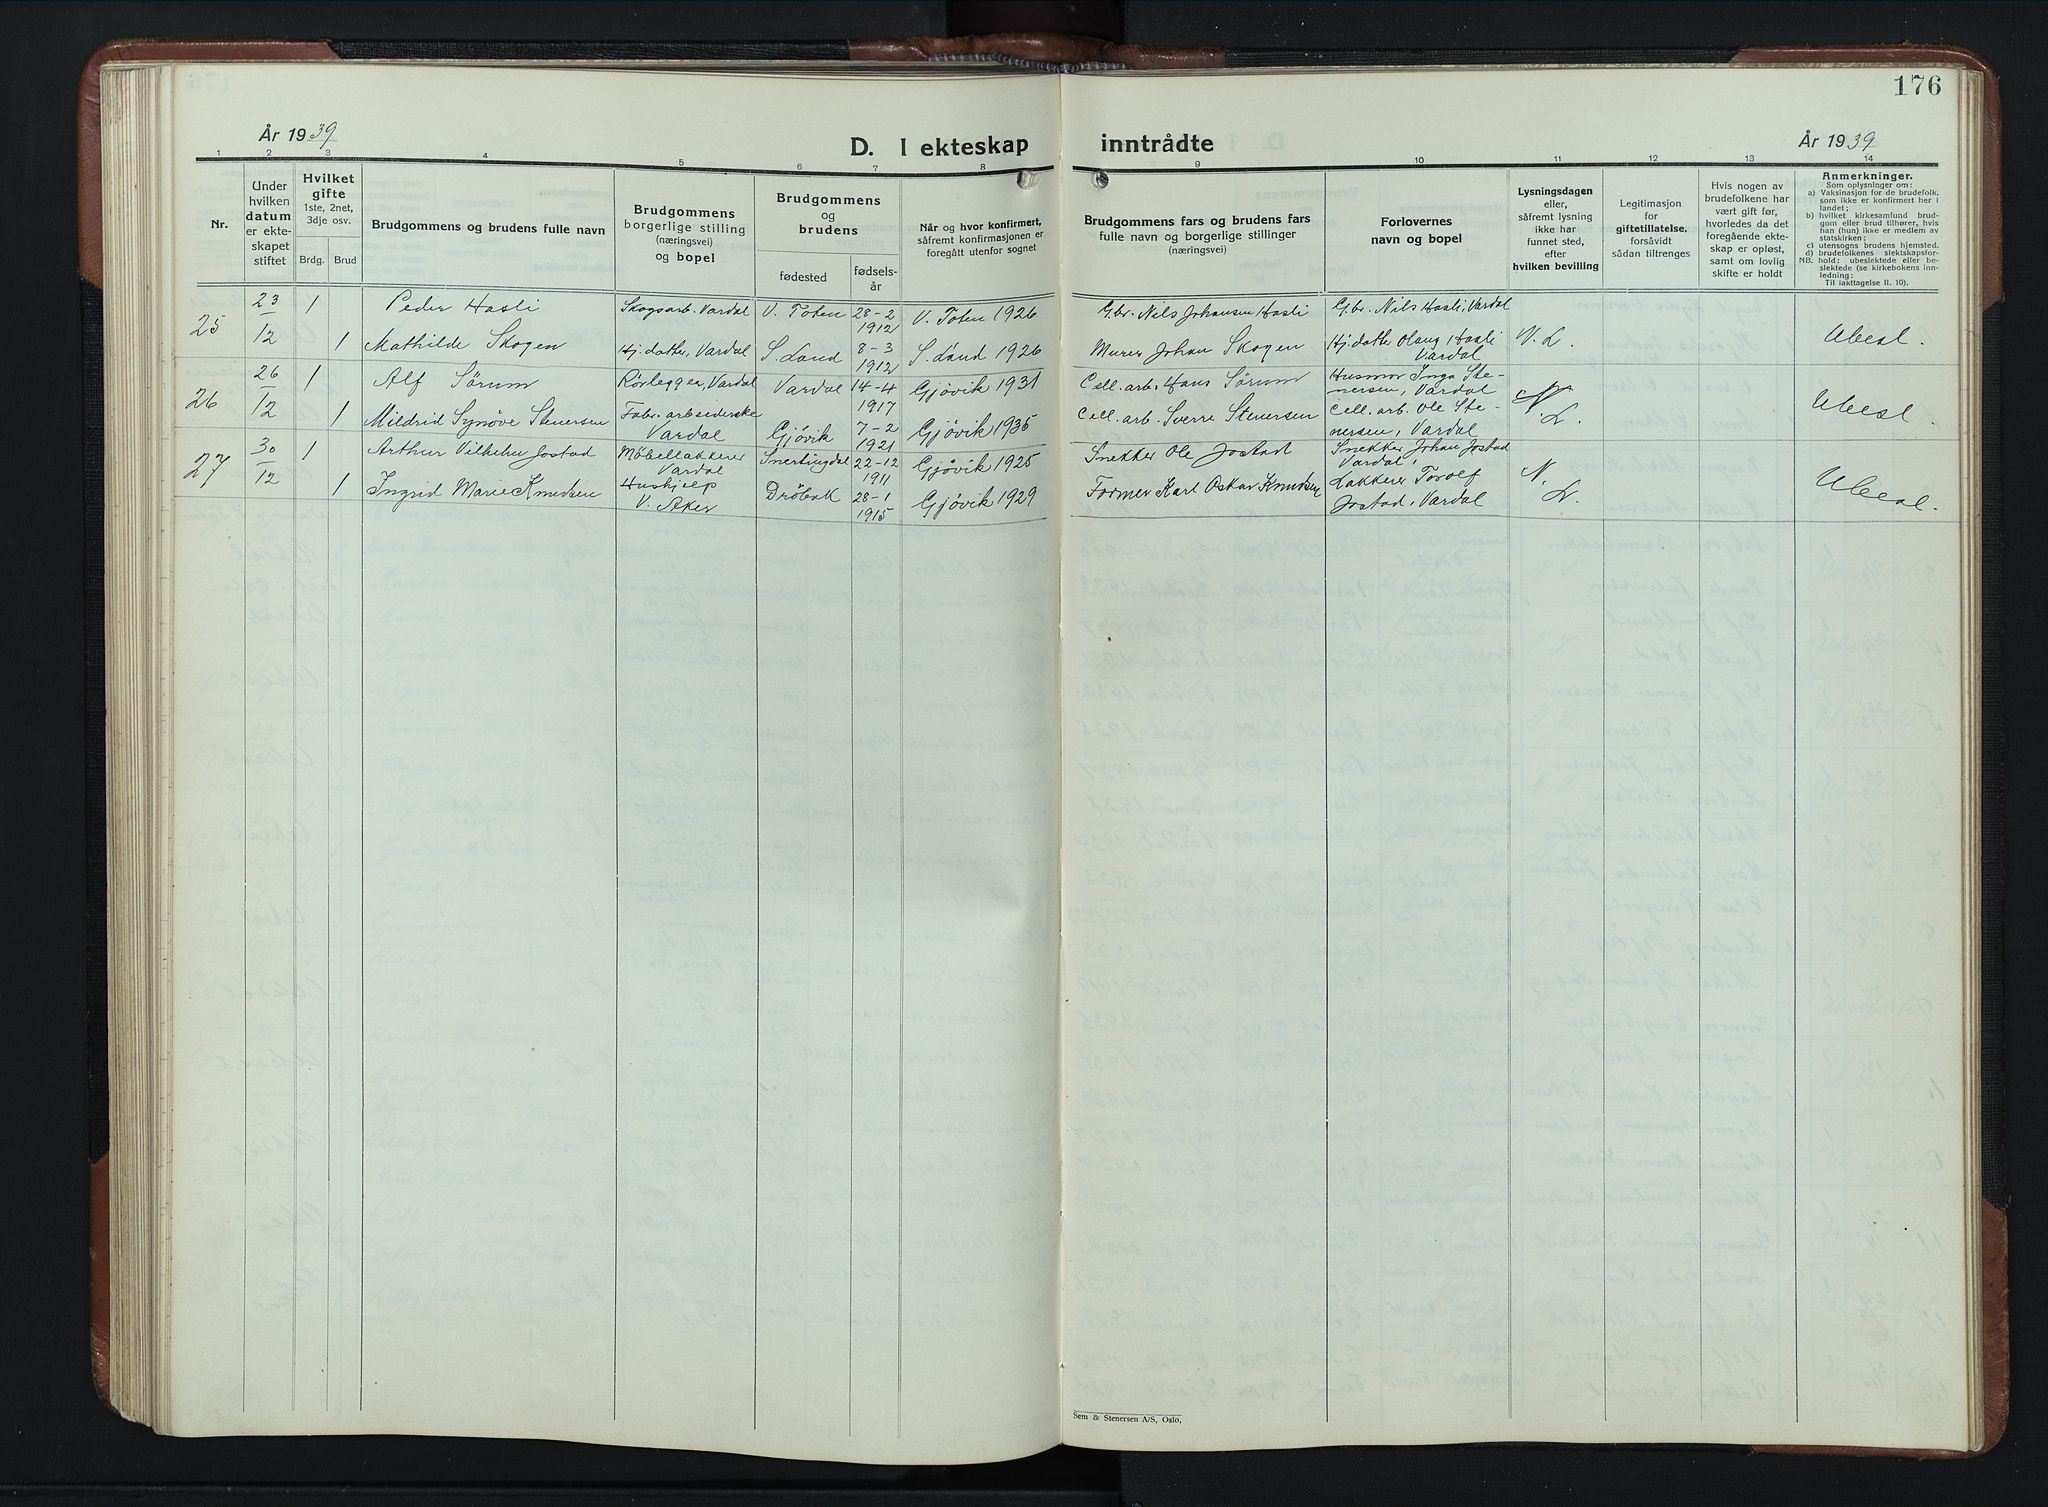 176
År 1939
D. I ekteskap inntrådte
År 1939
1 2 3 4 5 6 7 8 9 10 11 12 13 14
Nr.
Under hvilken datum er ekteskapet stiftet
Hvilket gifte
1ste, 2net, 3dje osv.
Brdg. Brud
Brudgommens og brudens fulle navn
Brudgommens borgerlige stilling (næringsvei) og bopel
Brudgommens og brudens
fødested
fødselsår
Når og hvor konfirmert, såfremt konfirmasjonen er foregått utenfor sognet
Brudgommens fars og brudens fars fulle navn og borgerlige stillinger (næringsvei)
Forlovernes navn og bopel
Lysningsdagen eller, såfremt lysning ikke har funnet sted, efter hvilken bevilling
Legitimasjon for giftetillatelse, forsåvidt sådan tiltrenges
Hvis nogen av brudefolkene har vært gift før, hvorledes da det foregående ekteskap er opløst, samt om lovlig skifte er holdt
Anmerkninger.
Som oplysninger om:
a) Vaksinasjon for de brudefolk, som ikke er konfirmert her i landet;
b) hvilket kirkesamfund brudgom eller brud tilhører, hvis han (hun) ikke er medlem av statskirken;
c) utensogns brudens hjemsted.
d) brudefolkenes slektskapsforhold: ubeslektede eller beslektede (se kirkebokens innledning:
NB. Til iakttagelse II. 10).
25 23/12 1 Peder Hasli Skogsarb. Vardal V. Toten 28-2 1912 V. Toten 1926 G.br. Nils Johansen Hasli G.br. Nils Hasli, Vardal
1 Mathilde Skogen Hj.datter, Vardal S. Land 8-3 1912 S. Land 1926 Murer Johan Skogen Hj.datter Olaug Hasli Vardal V. L. Ubesl.
26 26/12 1 Alf Sørum Rørlegger, Vardal Vardal 14-4 1917 Gjøvik 1931 Cell. arb. Hans Sørum Husmor Inga Stenersen, Vardal
1 Mildrid Synøve Stenersen Fabr. arbeiderske Vardal Gjøvik 7-2 1921 Gjøvik 1935 Cell. arb. Sverre Stenersen Cell. arb. Ole Stenersen, Vardal V. L. Ubesl.
27 30/12 1 Arthur Vilhelm Jostad Møbellakkerer Vardal Snertingdal 22-12 1911 Gjøvik 1925 Snekker Ole Jostad Snekker Johan Jostad Vardal,
1 Ingrid Marie Knudsen Hushjelp V. Aker Drøbak 28-1 1915 Gjøvik 1929 Former Karl Oskar Knudsen Lakkerer Torolf Jostad, Vardal V. L. Ubesl.
Sem & Stenersen A/S, Oslo,